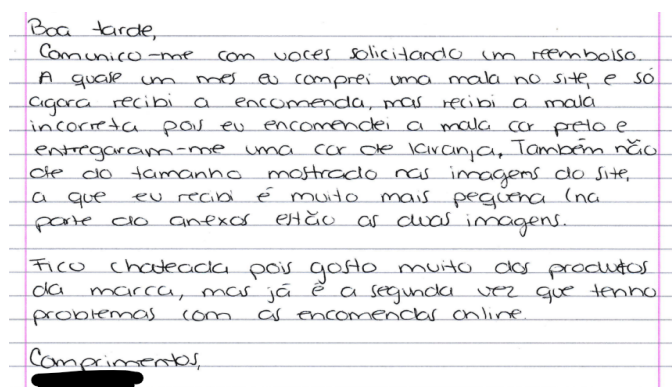 Boa tarde,
Comunico-me com voces solicitando um reembolso.
A quase um mes eu comprei uma mala no site, e só
agora recibi a encomenda, mas recibi a mala
incorreta pois eu encomendei a mala cor preto e
entregaram-me uma cor de laranja, Também não
de do tamanho mostrado nas imagens do site,
a que eu recibi é muito mais pequena (na
parte do anexos estão as duas imagens.
Fico chateada pois gosto muito dos produtos
da marca, mas já è a segunda vez que tenho
problemas com as encomendas online.
Comprimentos,